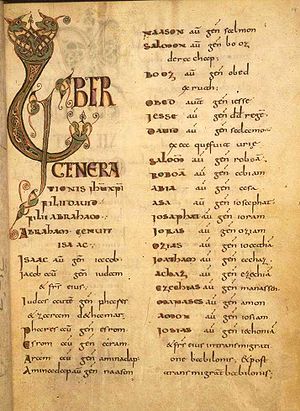 LIBER
GENERA
TIONIS IHU XPI
FILII DAUID
FILII ABRAHAM
ABRAHAM GENUIT
ISAAC
ISAAC aū gen̄ iacob
Iacob aū gen̄ iudam
& fr̄s eius
Iudas aū gen̄ phares
& zaram de thamar
Phares aū gen̄ esrom
Esrom aū gen̄ aram
Aram aū gen̄ aminadap
Aminadap aū gen̄ naason
NAASON aū gen̄ salmon
SALOMON aū gen̄ booz
de rachab
BOOZ aū gen̄ obed
ex ruth
OBED aūt gen̄ iesse
IESSE aū gen̄ dd̄ regē
DAUID aū gen̄ salomo
ex ea que fuit urie
SALOMŌ aū gen̄ roboā
ROBOĀ aū gen̄ abiam
ABIA aū gen̄ asa
ASA aū gen̄ iosaphat
IOSAPHAT aū gen̄ ioram
IORAS aū gen̄ oziam
OZIAS aū gen̄ ioatha
IOATHAM aū gen̄ achaz
ACHAZ aū gen̄ ezechiā
EZECHIAS aū gen̄ manassen
MANASSES aū gen̄ amon
AMON aū gen̄ iosiam
IOSIAS aū gen̄ iechoniā
& fr̄s eius in transmigrati
one babilonis, & post
transmigrat babilonis